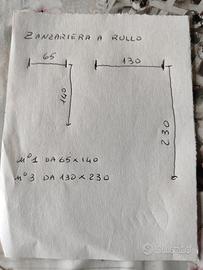 ZANZARIERA A RULLO
65
130
140
230
N° 1 DA 65 X 140
N° 3 DA 130 X 230
subito